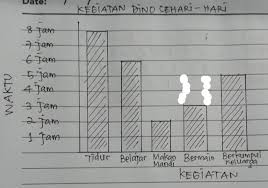 Date:
KEGIATAN DINO SEHARI-HARI
WAKTU
8 Jam
7 Jam
6 Jam
5 Jam
4 Jam
3 Jam
2 Jam
1 Jam
Tidur Belajar Makan Mandi Bermain Berkumpul Keluarga
KEGIATAN